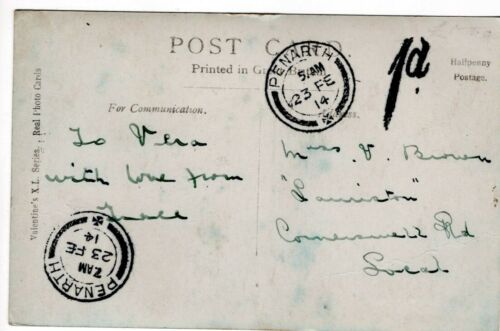 POST CARD.
Printed in Great Britain.
Halfpenny
Postage.
1d
PENARTH
5 AM
23 FE
14
For Communication.
Address.
To Vera
with love from
Miss V. Brown
"Lauriston"
Cornerswell Rd
Local
PENARTH
7 AM
23 FE
14
Valentine's X.L. Series. Real Photo Cards